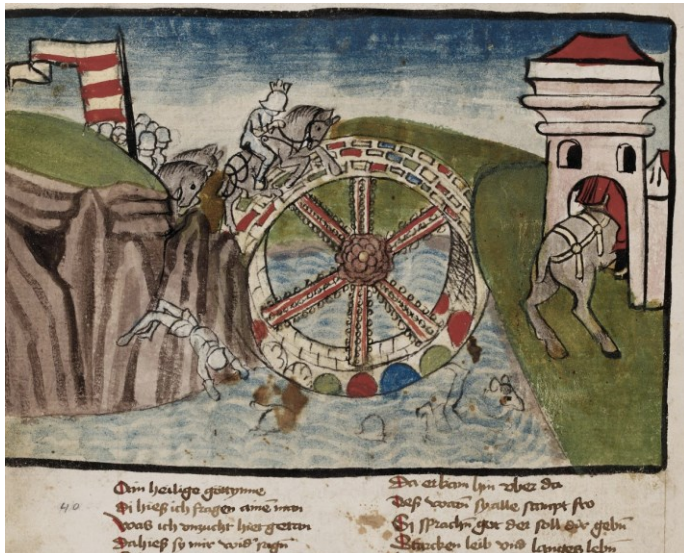 heilige gottynne
Si hieß ich fragen ainē man
40
Was ich vnzucht hier gettan
Da hieß sy mir wid sagn
Da er kam hin vber da
Deß warn sy alle sampt fro
Si sprachn got der soll dir gebn
Starcken leib vnd langes lebn